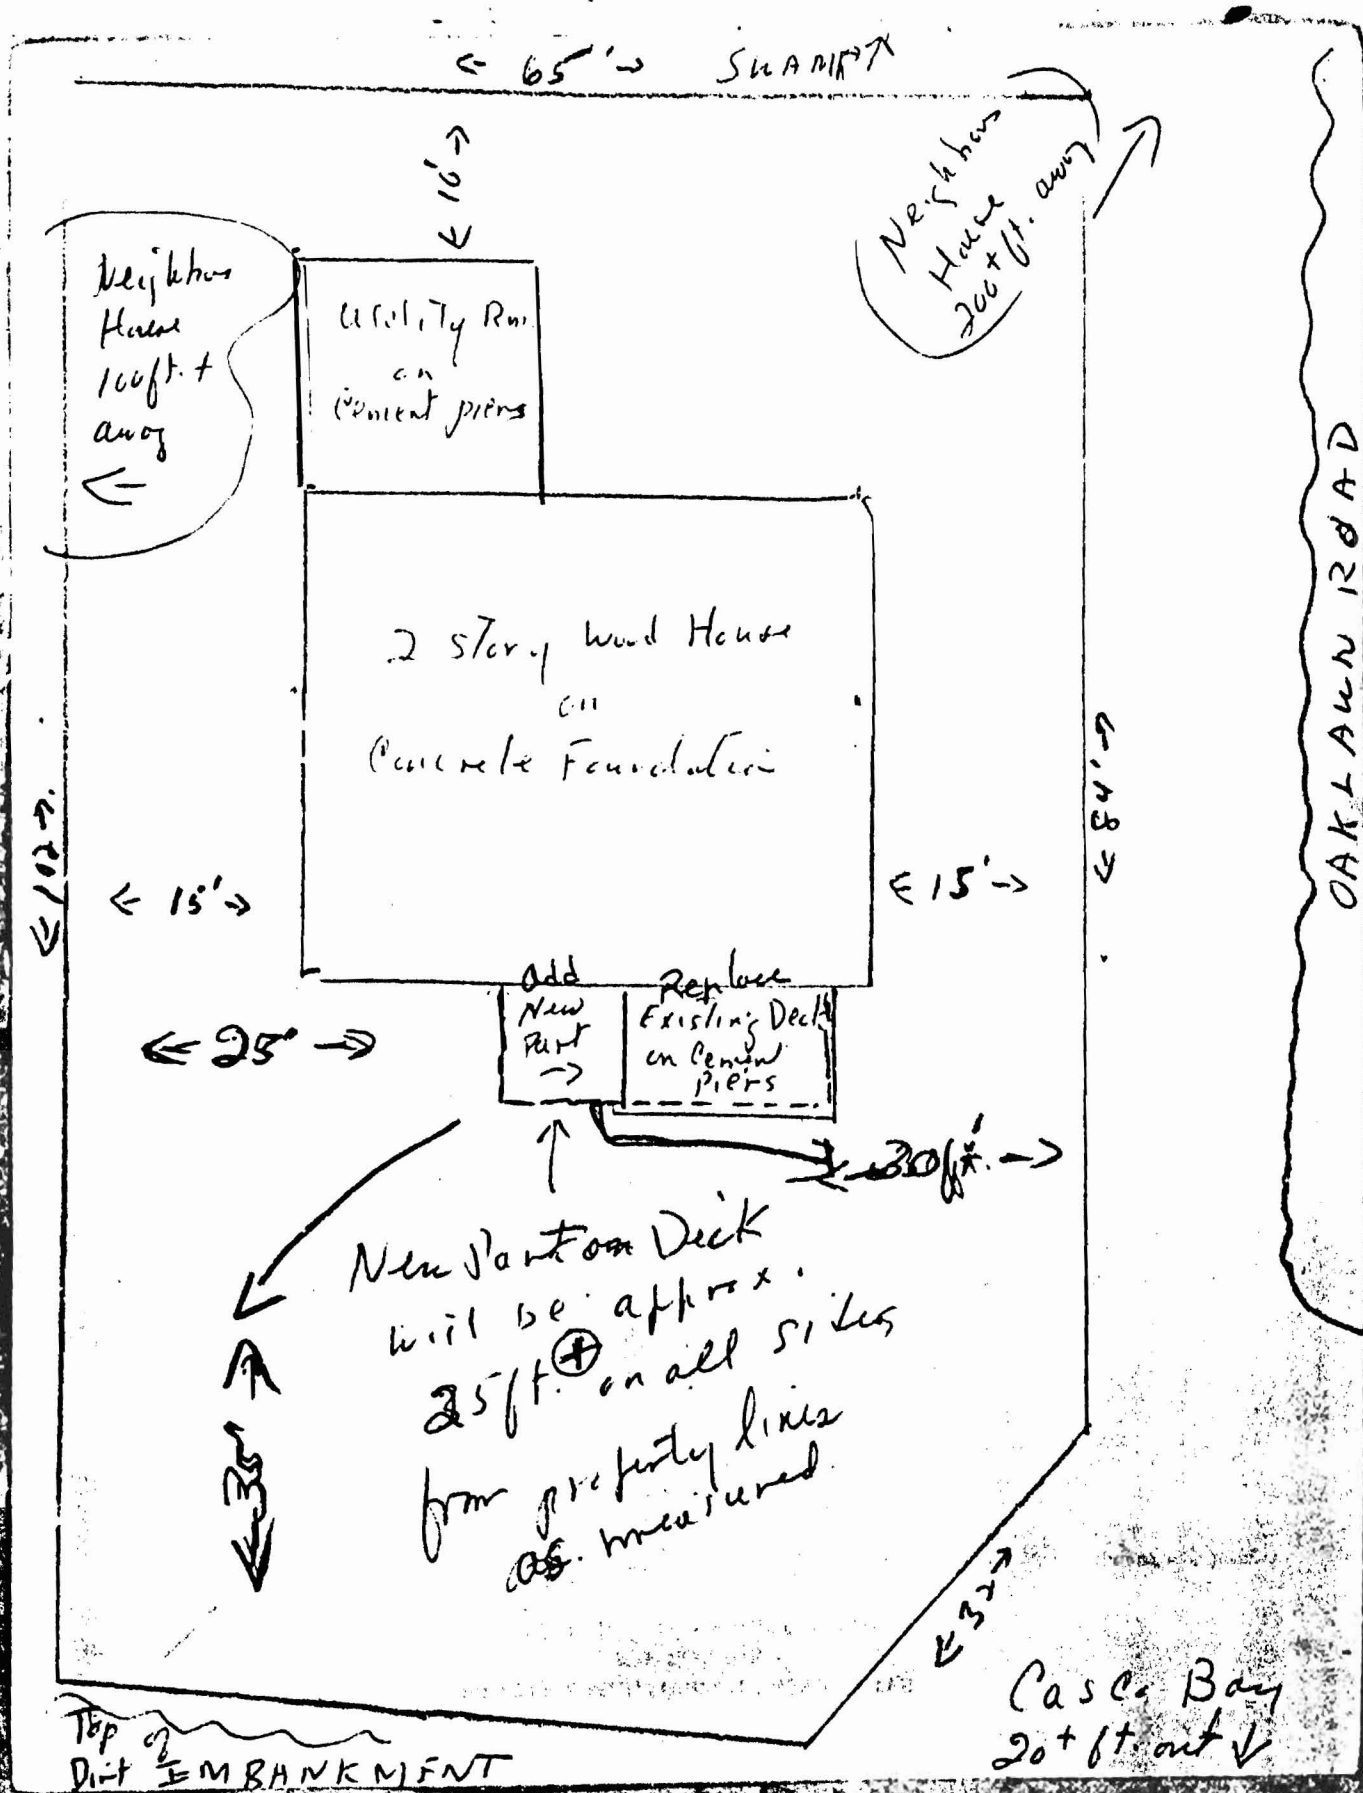 ← 65' → SWAMP ↑
← 10' →
Neighbors
House
200+ ft. away
Neighbors
House
100 ft. +
away
←
Utility Rm.
on
Cement piers
OAKLAWN ROAD
2 Story Wood House
on
Concrete Foundation
← 102 →
← 84' →
← 15' →
← 15' →
← 25' →
Add
New
Part
→
Replace
Existing Deck
on Cement
Piers
← 30 ft. →
New Part on Deck
will be approx.
25 ft. + on all sites
from property lines
as measured
← 35' →
← 32 →
Top of
Dirt EMBANKMENT
Casco Bay
20+ ft. out ↓